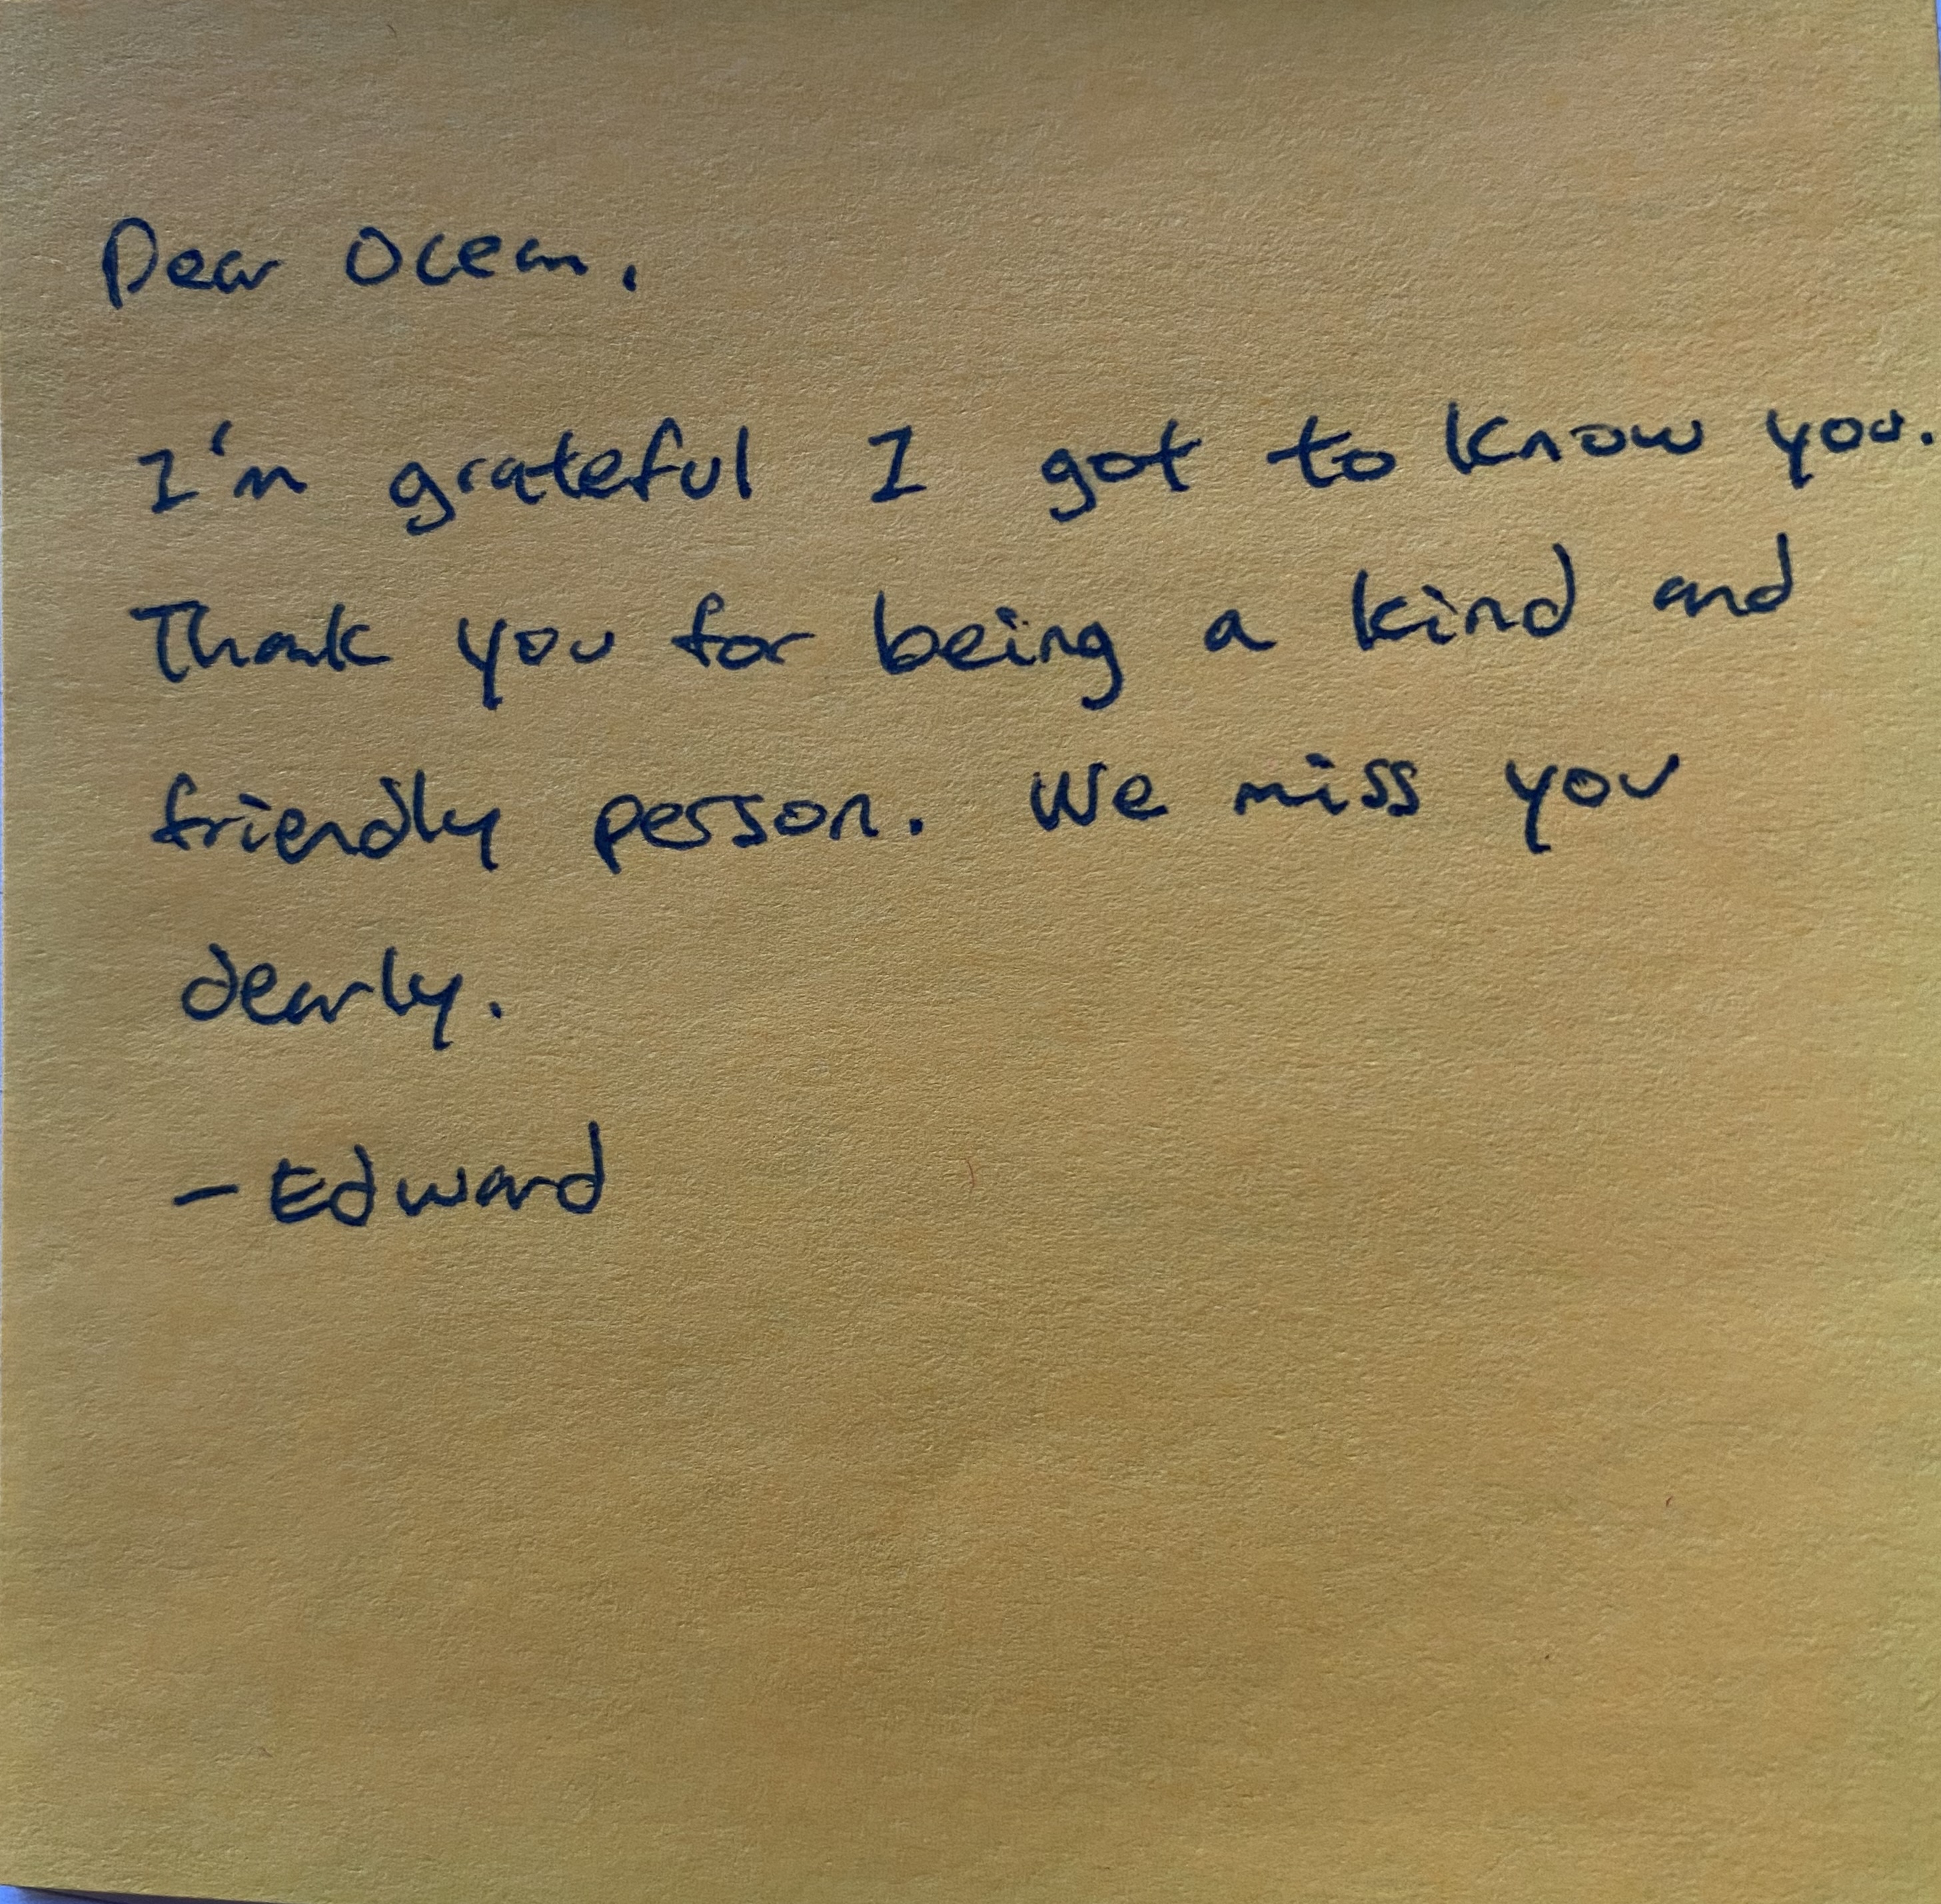 Dear Ocean,
I'm grateful I got to know you.
Thank you for being a kind and
friendly person. We miss you
dearly.
- Edward